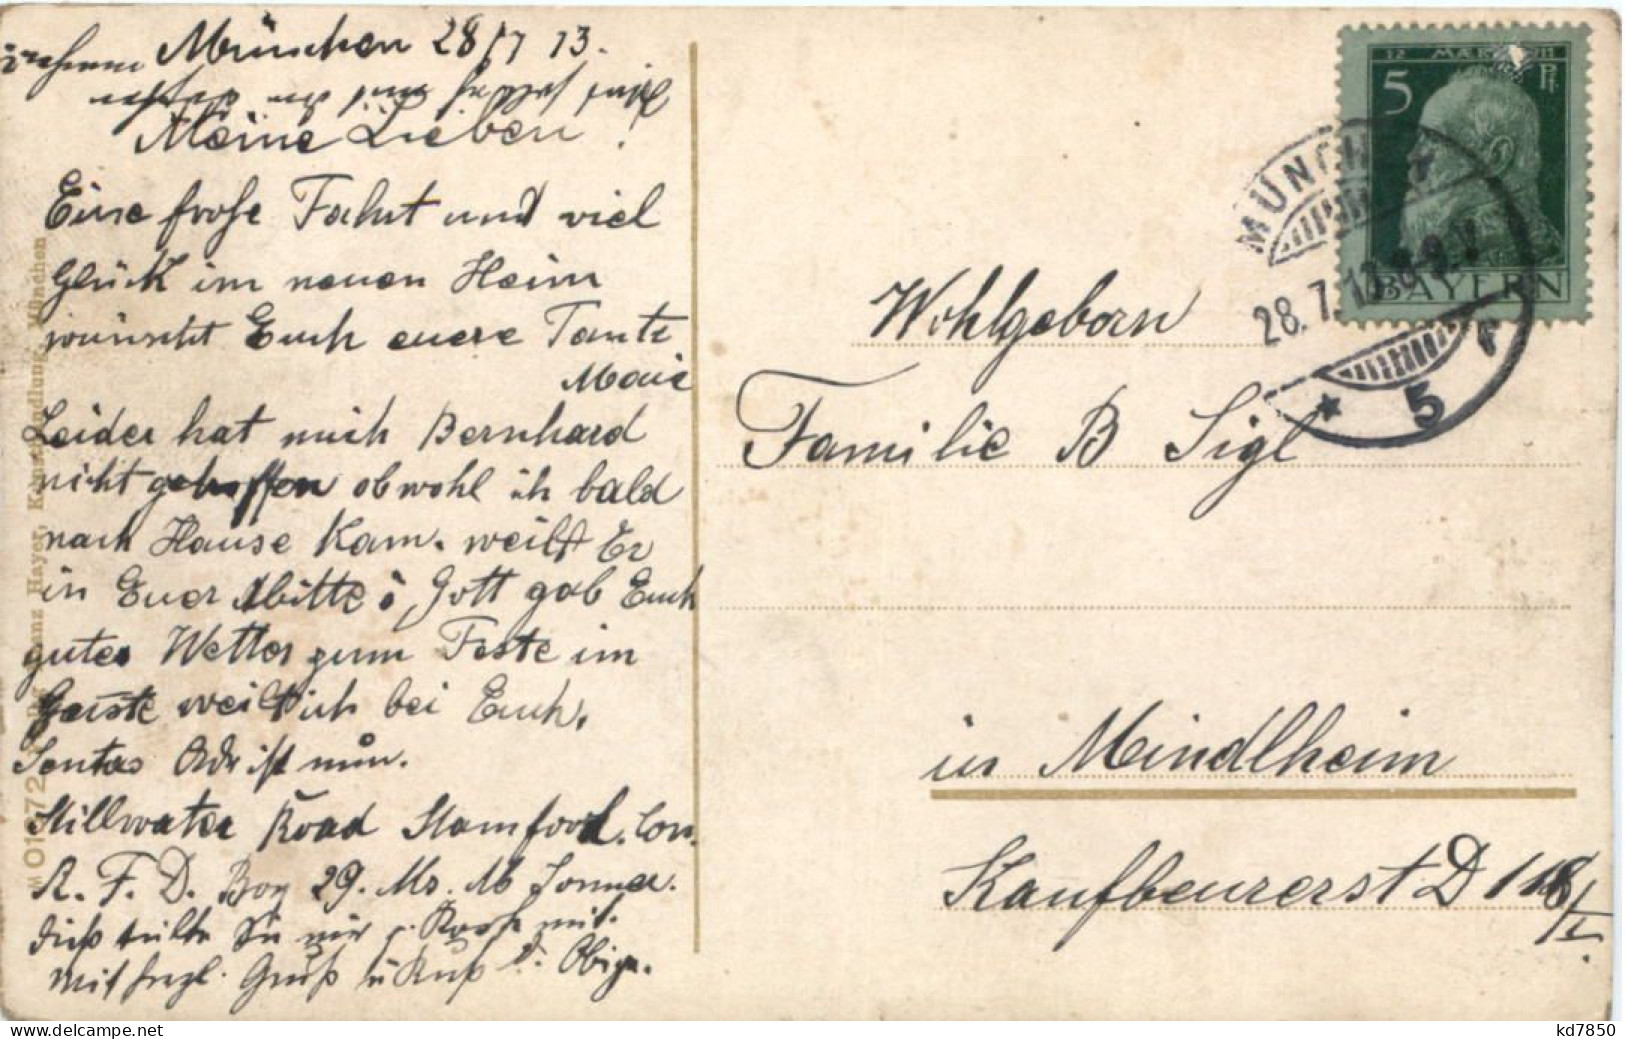 München 28/7 13.
Meine Lieben!
Eine frohe Fahrt und viel
Glück im neuen Heim
wünscht Euch euere Tante
Marie
Leider hat mich Bernhard
nicht getroffen obwohl ich bald
nach Hause kam. weilt Er
in Euer Mitte? Gott gab Euch
gutes Wetter zum Feste im
Geiste weilt ich bei Euch.
Sentas Adr ist nun.
Stillwater Road Stamford. Con.
R. F. D. Box 29. Mr. M
teilte Sie mir p. Karte mit.
Mit herzl. Gruß u Kuß d. Obige.
M 01672
Franz Hayer, Kunsthandlung, München
12 MÆRZ 1911
5 Pf.
BAYERN
MÜNCHEN
28.7.13. 8-9.V
* 5
Wohlgeborn
Familie B Sigl
in Mindlheim
Kaufbeurerst D 118/I.
www.delcampe.net
kd7850